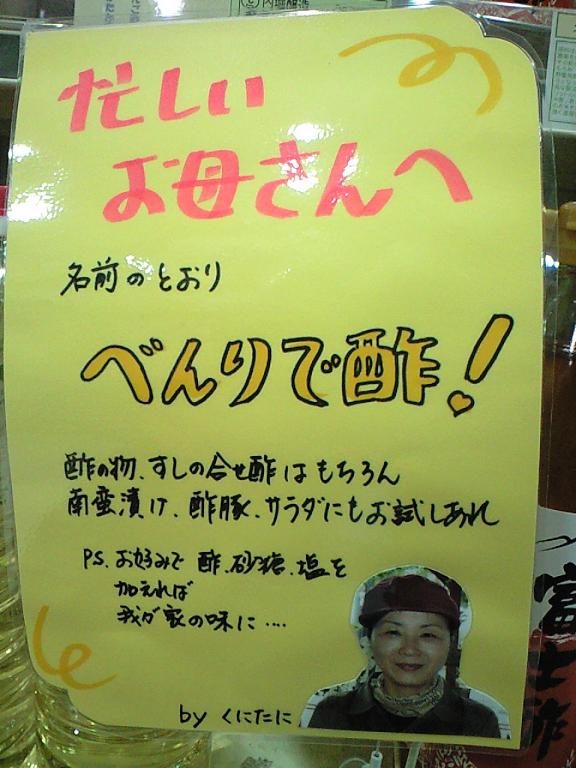 忙しい
お母さんへ
名前のとおり
べんりで酢!
酢の物、すしの合せ酢はもちろん
南蛮漬け、酢豚、サラダにもお試しあれ
PS、お好みで 酢、砂糖、塩を
加えれば
我が家の味に‥‥
by くにたに
富士酢